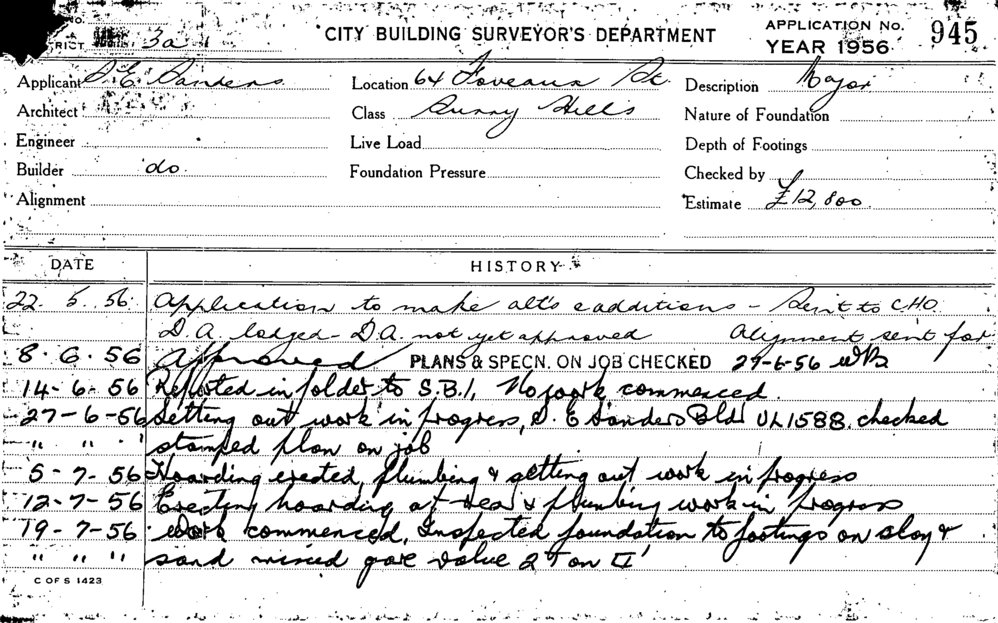 NO.
RICT 3a
CITY BUILDING SURVEYOR'S DEPARTMENT
APPLICATION No. 945
YEAR 1956
Applicant D. E. Sanders
Location 64 Foveaux St.
Description Major
Architect
Class Surry Hills
Nature of Foundation
Engineer
Live Load
Depth of Footings
Builder do.
Foundation Pressure
Checked by
Alignment
Estimate £12,800
DATE HISTORY
22. 5. 56. Application to make alt's & additions – Sent to C.H.O.
D.A. lodged – D.A. not yet approved Alignment sent for
8. 6. 56 Approved PLANS & SPECN. ON JOB CHECKED 27-6-56 WB
14- 6- 56 Reported in folder to S.B.I, No work commenced
27- 6- 56 Setting out work in progress, D. E Sanders Bldr UL1588, checked
" " " stamped plan on job
5- 7- 56 Hoarding erected, plumbing & setting out work in progress
12- 7- 56 Erecting hoarding at rear & plumbing work in progress
19- 7- 56 Work commenced, Inspected foundation to footings on clay &
" " " sand mixed gave value 2 Ton □'
C OF S 1423